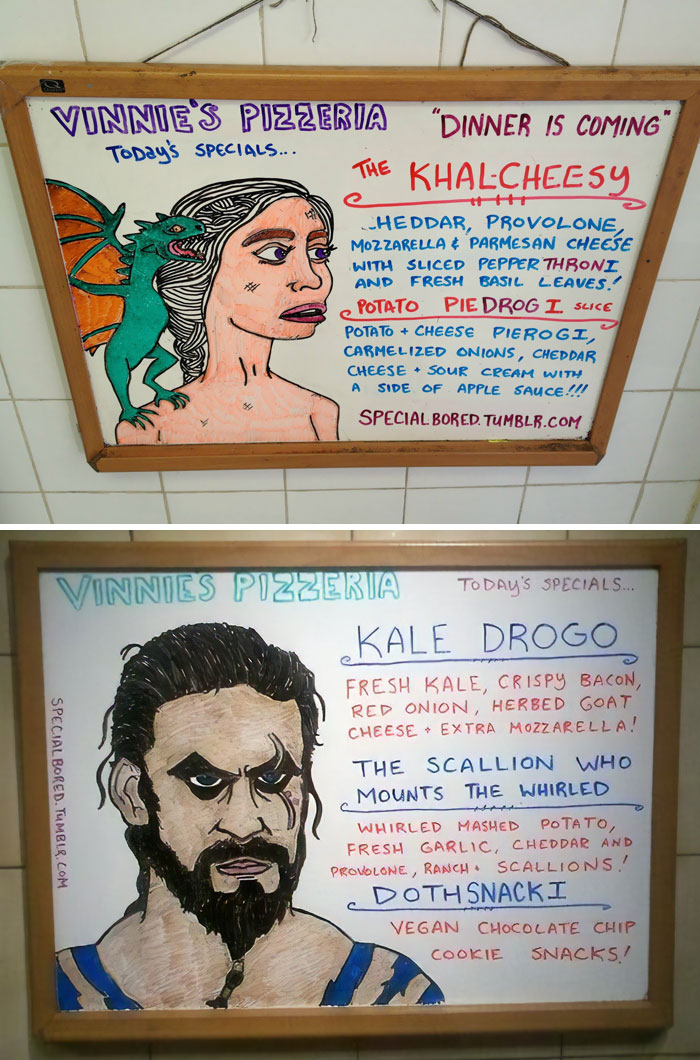 VINNIE'S PIZZERIA
"DINNER IS COMING"
TODAY'S SPECIALS...
THE KHAL-CHEESY
HEDDAR, PROVOLONE,
MOZZARELLA & PARMESAN CHEESE
WITH SLICED PEPPERTHRONI
AND FRESH BASIL LEAVES!
POTATO PIEDROGI SLICE
POTATO + CHEESE PIEROGI,
CARMELIZED ONIONS, CHEDDAR
CHEESE + SOUR CREAM WITH
A SIDE OF APPLE SAUCE!!!
SPECIALBORED.TUMBLR.COM
VINNIE'S PIZZERIA
TODAY'S SPECIALS...
KALE DROGO
FRESH KALE, CRISPY BACON,
RED ONION, HERBED GOAT
CHEESE + EXTRA MOZZARELLA!
THE SCALLION WHO
MOUNTS THE WHIRLED
WHIRLED MASHED POTATO,
FRESH GARLIC, CHEDDAR AND
PROVOLONE, RANCH + SCALLIONS!
DOTHSNACKI
VEGAN CHOCOLATE CHIP
COOKIE SNACKS!
SPECIALBORED.TUMBLR.COM